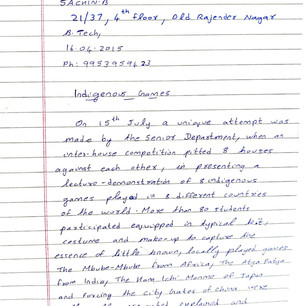 SACHIN.B
21/37, 4th floor, Old Rajender Nagar
B.Tech,
16.04.2015
Ph: 9953959623
Indigenous Games
On 15th July a unique attempt was
made by the Senior Department, when an
inter-house competition pitted 8 houses
against each other, in presenting a
lecture-demonstration of 8 indigenous
games played in 8 different countries
of the world. More than 80 students
participated equipped in typical kit,
costume and makeup to capture the
essence of little known, locally played games
The Mbube-Mbube from Africa, The Atya Patya
from India, The Ham Ichi Monme of Japan
and Forcing the City Gates of China were
explained and